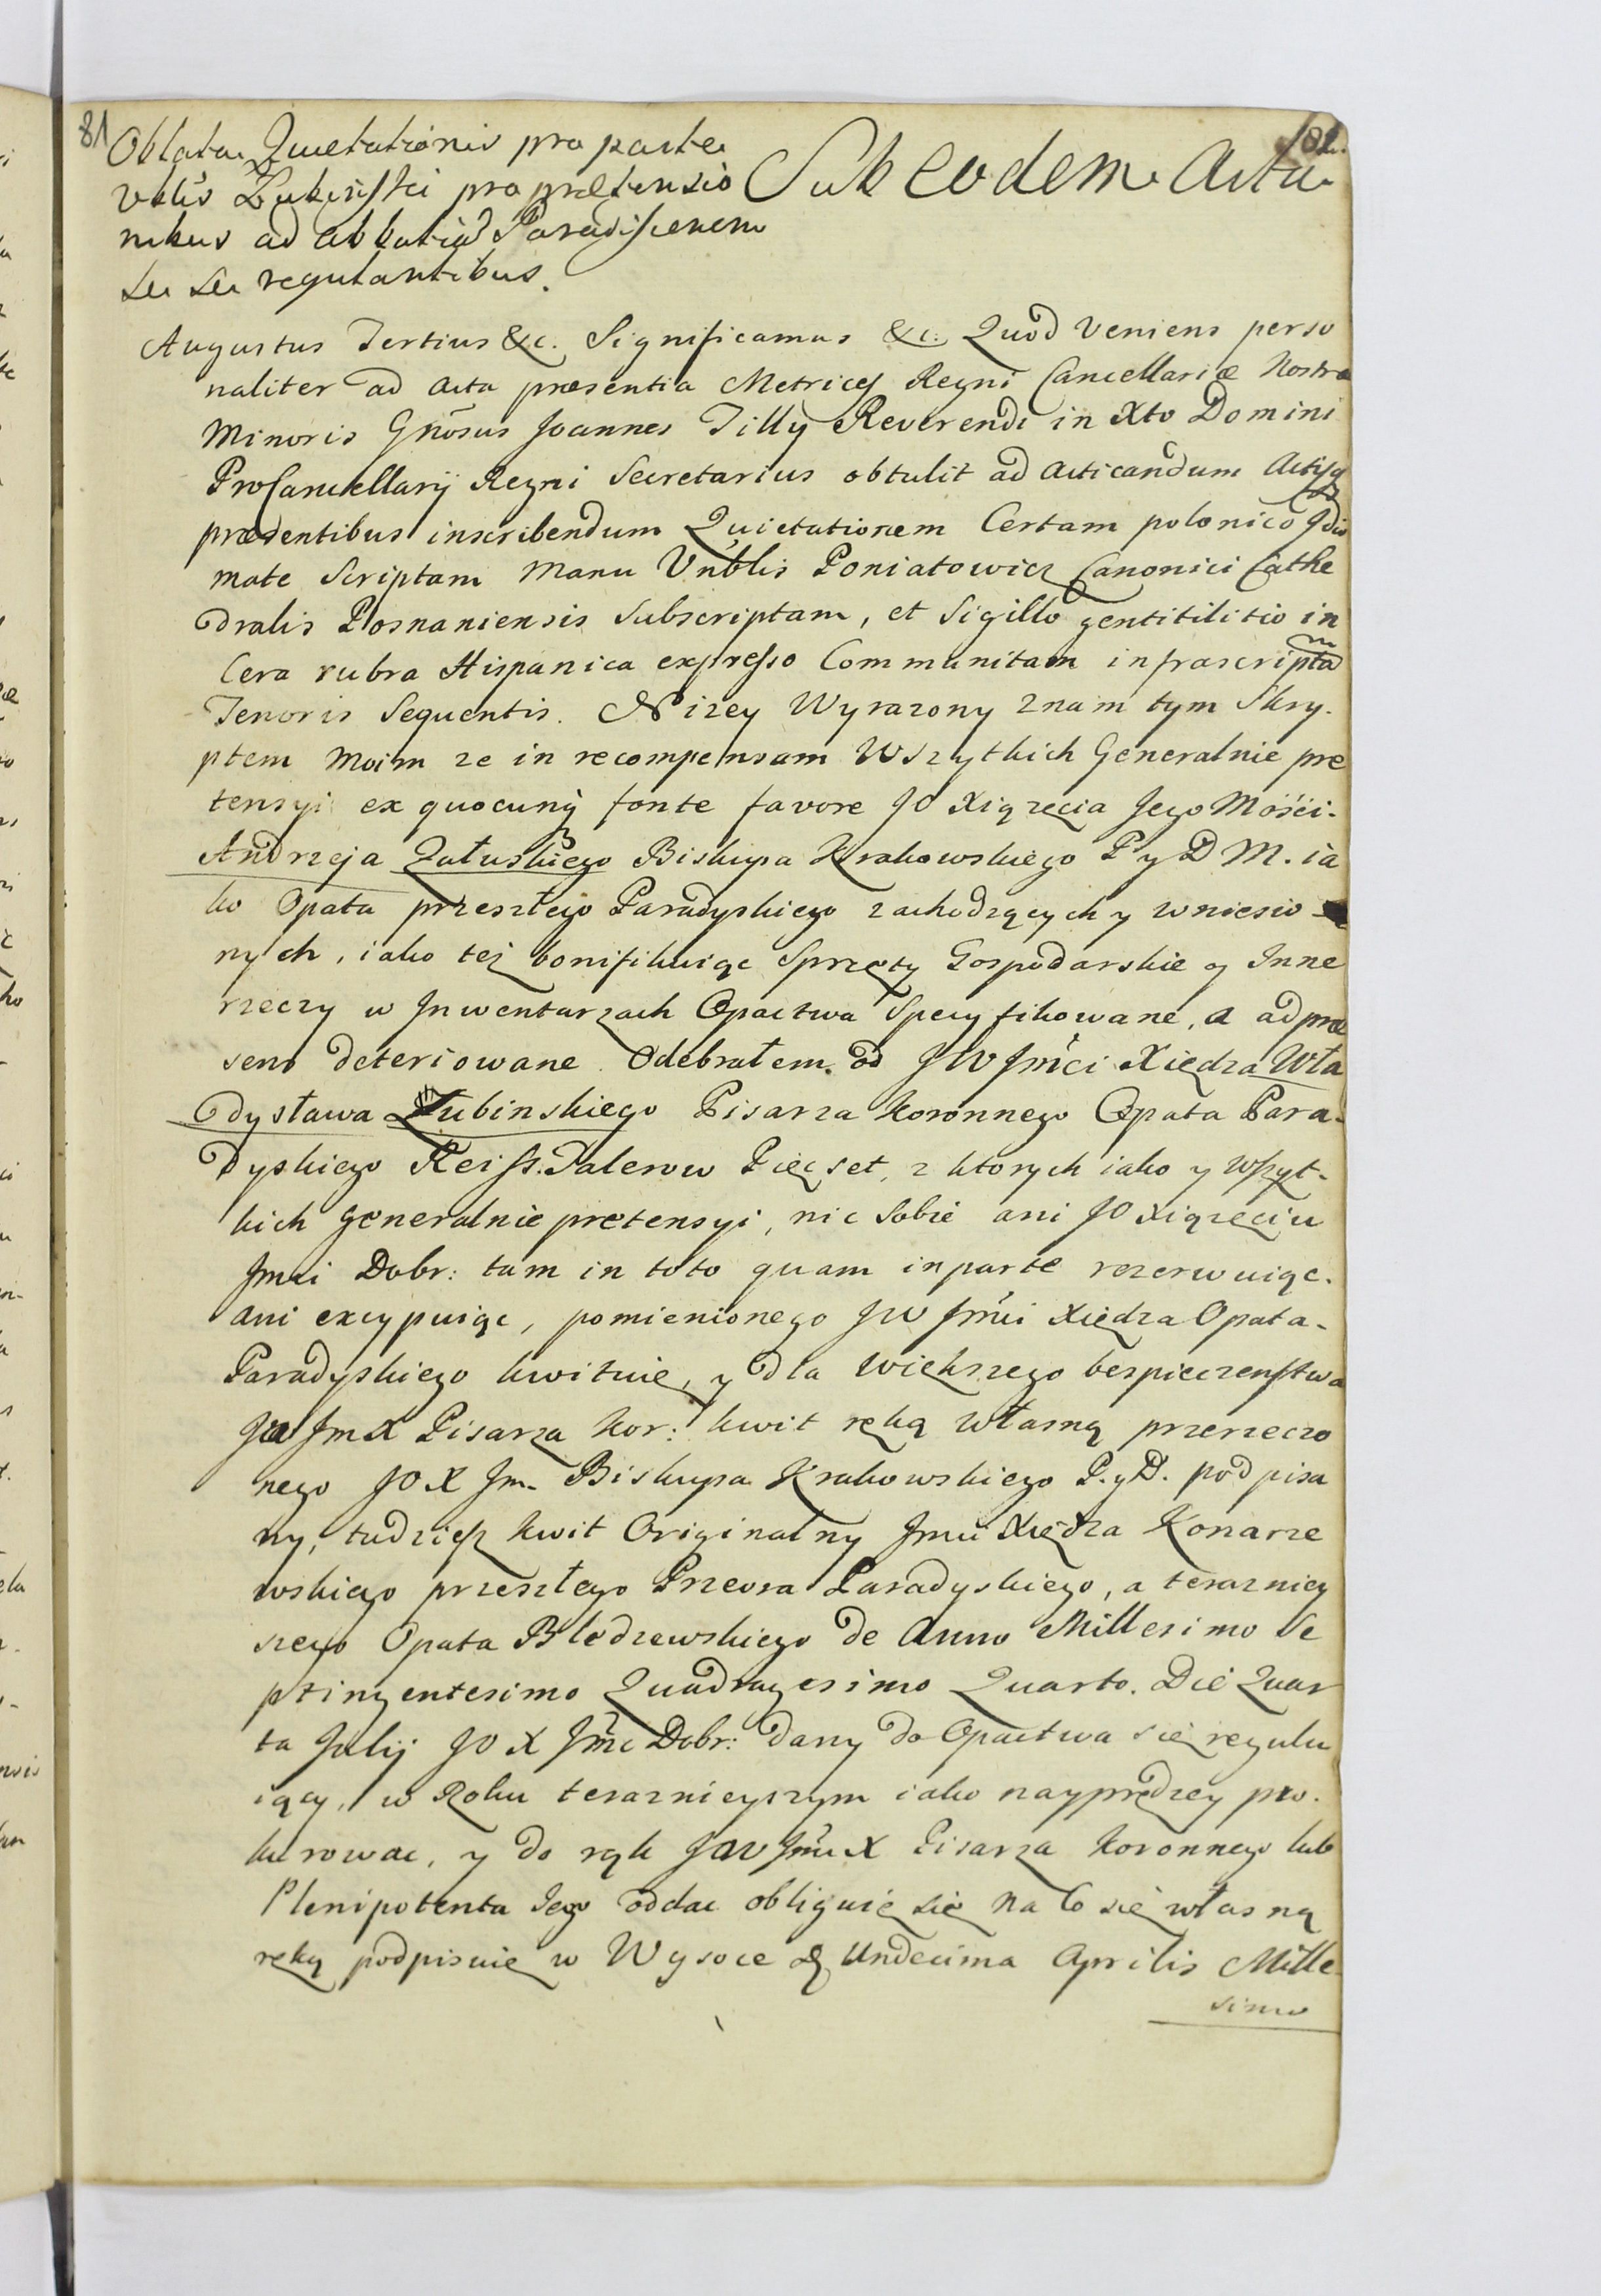 81
Oblata Quietationis pro parte
Vblis Łubiński pro prætensio
nibus ad abbatiã Paradiscenem
se se regulantibus.
Sub eodem Actu
Augustus Tertius &c. Significamus &c: Quod Veniens perso
naliter ad Acta præsentia Metrices Regni Cancellariæ Nostræ
Minoris Gnosus Joannes Tilly Reverendi in Xto Domini
ProCancellarij Regni Secretarius obtulit ad acticandum Actisq
præsentibus inscribendum Quietationem Certam polonico Idio
mate Scriptam Manu Vnblis Poniatowicz Canonici Cathe
dralis Posnaniensis Subscriptam, et Sigillo gentitilitio in
Cera rubra Hispanica expresso Communitam infrascriptã
Tenoris Sequentis. Nizey Wyrazony znam tym Skry-
ptem Moim ze in recompensam Wszytkich Generalnie pre
tensyi ex quocunq fonte favore JO Xiązecia Jego Mości.
Andrzeja Załuskiego Biskupa Krakowskiego P y D M. ia
ko Opata przeszłego Paradyskiego zachodzących y wniesio
nych, iako też bonifikuiąc Sprzęty Gospodarskie y Inne
rzeczy w Inwentarzach Opactwa Specyfikowane, a ad præ
sens deteriowane Odebrałem od JW Jmci Xiędza Wła
dysława Łubinskiego Pisarza Koronnego Opata Para-
dyskiego Reiss. Talerow Pięcset, z ktorych iako y Wszyt-
kich generalnie pretensyi, nic Sobie ani JO Xiązeciu
Jmci Dobr: tam in toto quam in parte rezerwuiąc.
ani excypuiąc, pomienionego JW Jmci Xiędza Opata-
Paradyskiego kwituię, y dla Większego bezpieczenstwa
JW Jm X Pisarza Kor: kwit ręką własną przerzeczo
nego JO X Jm. Biskupa Krakowskiego P. y D. podpisa
ny, tudziesz kwit Originalny Jmci Xiędza Konarze
wskiego przeszłego Przeora Paradyskiego, a terazniey
szego Opata Bledzewskiego de Anno Millesimo Se
ptingentesimo Quadragesimo Quarto. Die Quar
ta Julij JO X Jmc Dobr: dany do Opactwa się regulu
iący, w Roku teraznieyszym iako nayprędzey pro-
kurowac, y do rąk JW Jmci X Pisarza Koronnego lub
Plenipotenta Jego oddac obliguię się Na Co się własną
ręką podpisuię w Wysoce d Undecima Aprilis Mille
simo